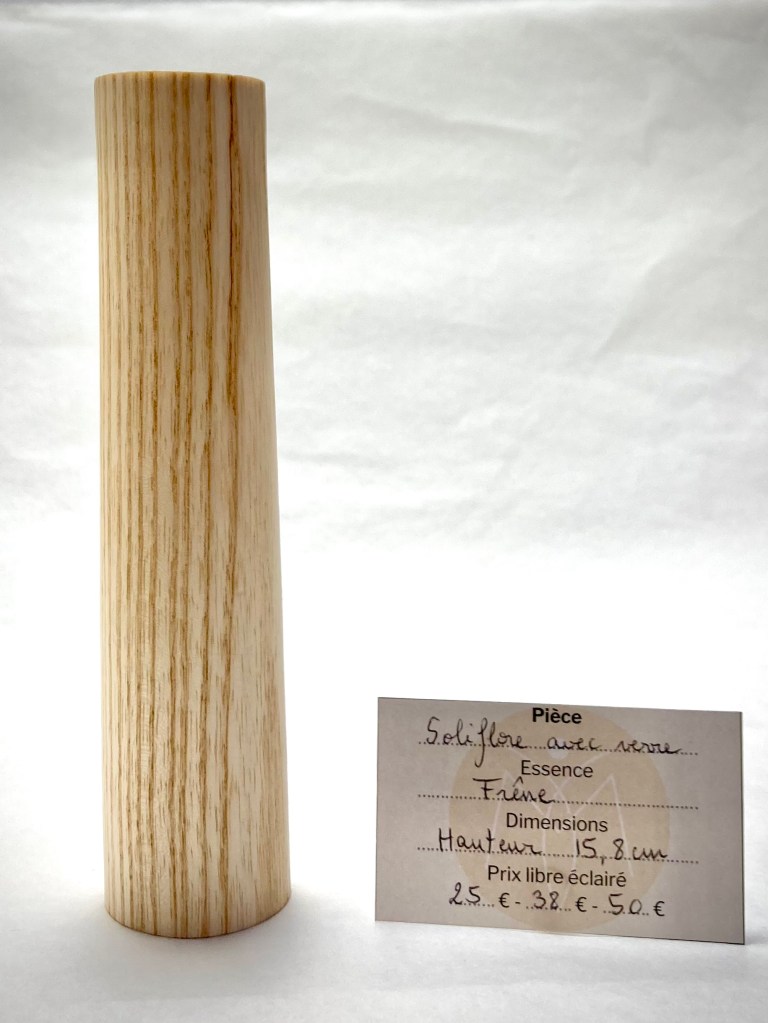 Pièce
Soliflore avec verre
Essence
Frêne
Dimensions
Hauteur 15,8 cm
Prix libre éclairé
25 € - 38 € - 50 €